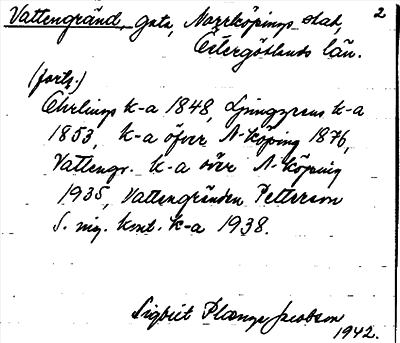 Vattengränd, gata, Norrköpings stad, 2
Östergötlands län.
(forts.)
Ehrlings k-a 1848, Ljunggrens k-a
1853, k-a öfver N-köping 1876,
Vattengr. k-a över N-köping
1935, Vattengränden Petterson
S. mig. kmt. k-a 1938.
Sigbrit Plænge Jacobson
1942.